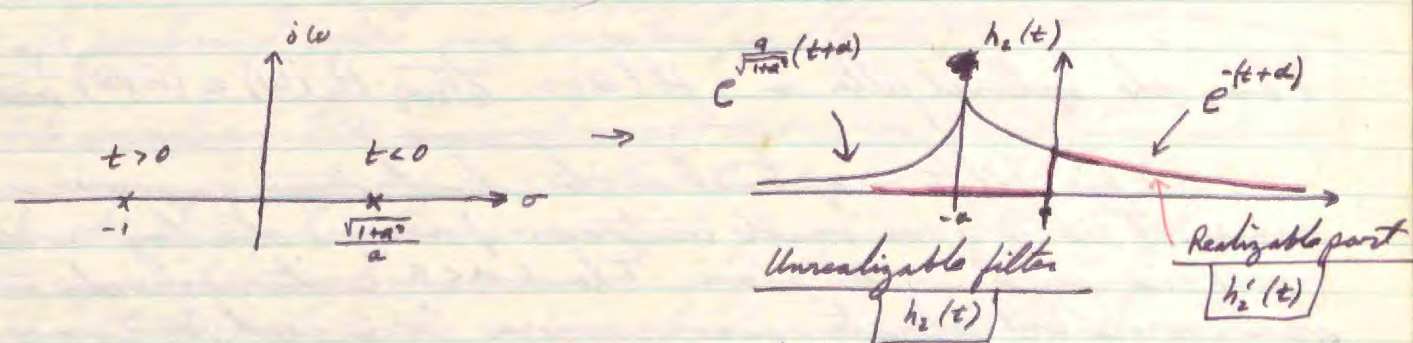 jω
t > 0
t < 0
-1
√(1+a²)/a
σ
→
e^{a/√(1+a²) (t+α)}
h₂(t)
e^{-(t+α)}
-a
Unrealizable filter
h₂(t)
Realizable part
h₂'(t)